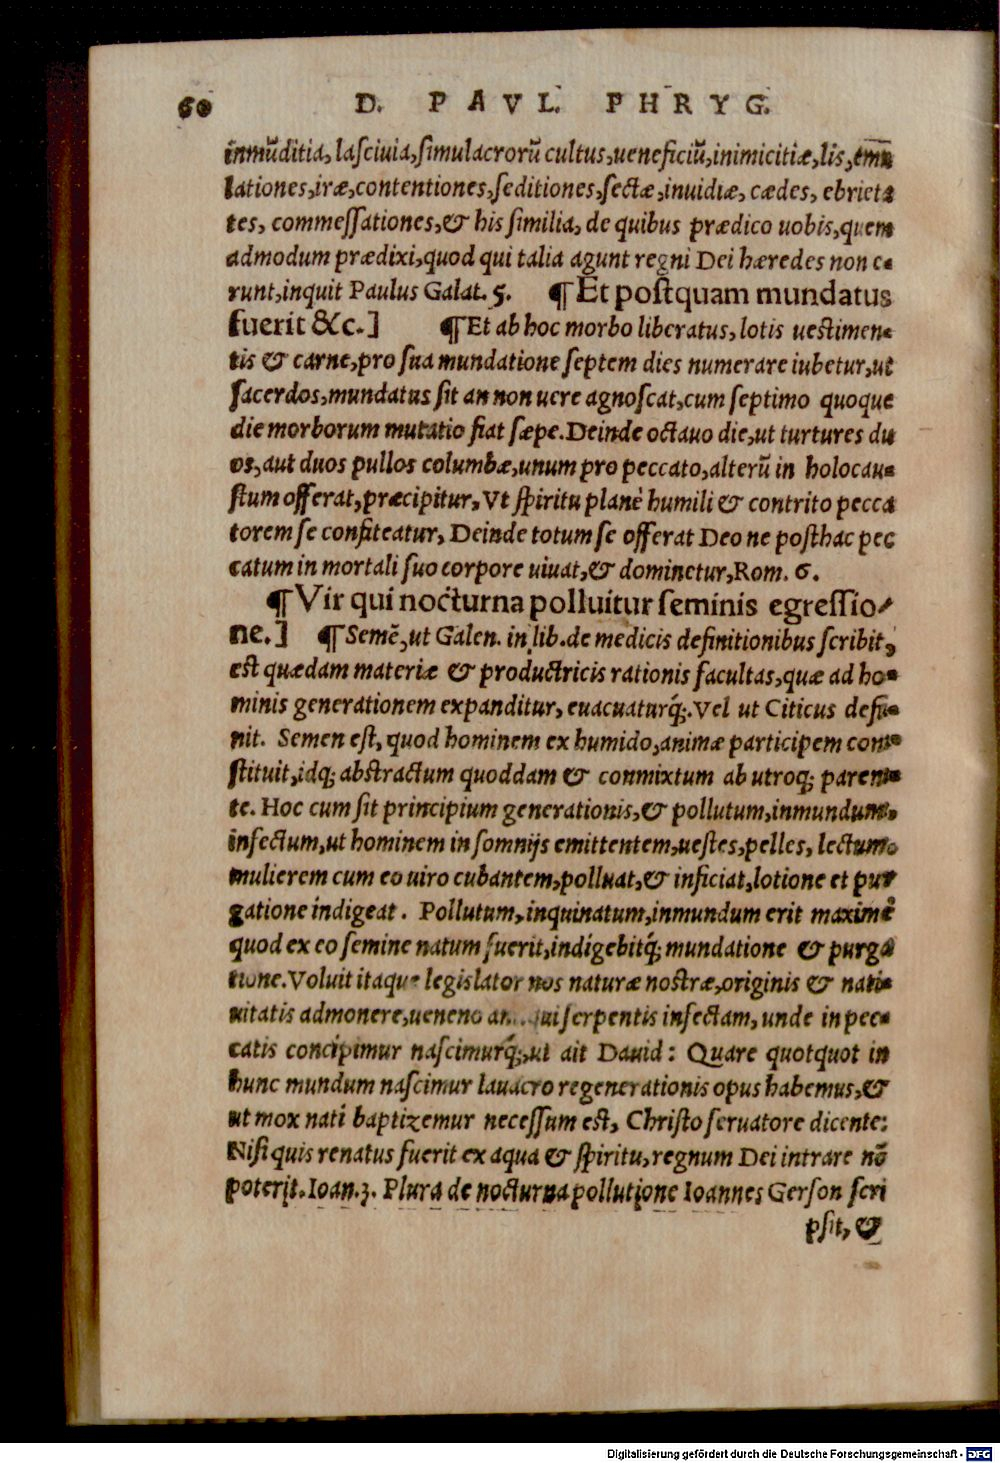 60 D. PAVL. PHRYG.
inmũditia, laſciuia, ſimulacrorũ cultus, ueneficiũ, inimicitiæ, lis, ęmu
lationes, iræ, contentiones, ſeditiones, ſectæ, inuidiæ, cædes, ebrieta
tes, commeſſationes, & his ſimilia, de quibus prædico uobis, quem
admodum prædixi, quod qui talia agunt regni Dei hæredes non e-
runt, inquit Paulus Galat. 5. ¶ Et poſtquam mundatus
fuerit &c. ] ¶ Et ab hoc morbo liberatus, lotis ueſtimen-
tis & carne, pro ſua mundatione ſeptem dies numerare iubetur, ut
ſacerdos, mundatus ſit an non uere agnoſcat, cum ſeptimo quoque
die morborum mutatio fiat ſæpe. Deinde octauo die, ut turtures du
os, aut duos pullos columbæ, unum pro peccato, alterũ in holocau-
ſtum offerat, præcipitur, Vt ſpiritu planè humili & contrito pecca
torem ſe confiteatur, Deinde totum ſe offerat Deo ne poſthac pec
catum in mortali ſuo corpore uiuat, & dominetur, Rom. 6.
¶ Vir qui nocturna polluitur ſeminis egreſſio-
ne. ] ¶ Semẽ, ut Galen. in lib. de medicis definitionibus ſcribit,
eſt quædam materiæ & productricis rationis facultas, quæ ad ho-
minis generationem expanditur, euacuaturq́;. Vel ut Citicus defi-
nit. Semen eſt, quod hominem ex humido, animæ participem con-
ſtituit, idq; abſtractum quoddam & conmixtum ab utroq; paren-
te. Hoc cum ſit principium generationis, & pollutum, inmundum,
infectum, ut hominem in ſomnijs emittentem, ueſtes, pelles, lectum
mulierem cum eo uiro cubantem, polluat, & inficiat, lotione et pur
gatione indigeat. Pollutum, inquinatum, inmundum erit maximè
quod ex eo ſemine natum fuerit, indigebitq́; mundatione & purga
tione. Voluit itaque legislator nos naturæ noſtræ, originis & nati-
uitatis admonere, ueneno ſerpentis infectam, unde in pec-
catis concipimur naſcimurq́;, ut ait Dauid: Quare quotquot in
hunc mundum naſcimur lauacro regenerationis opus habemus, &
ut mox nati baptizemur neceſſum eſt, Chriſto ſeruatore dicente:
Niſi quis renatus fuerit ex aqua & ſpiritu, regnum Dei intrare nõ
poterit. Ioan. 3. Plura de nocturna pollutione Ioannes Gerſon ſcri
pſit, &
Digitalisierung gefördert durch die Deutsche Forschungsgemeinschaft - DFG